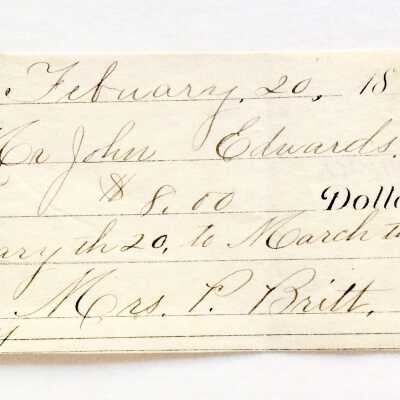 Febuary, 20, 18
Mr John Edwards.
$ 8.00 Dolla
ary th 20, to March th
Mrs. P. Britt.